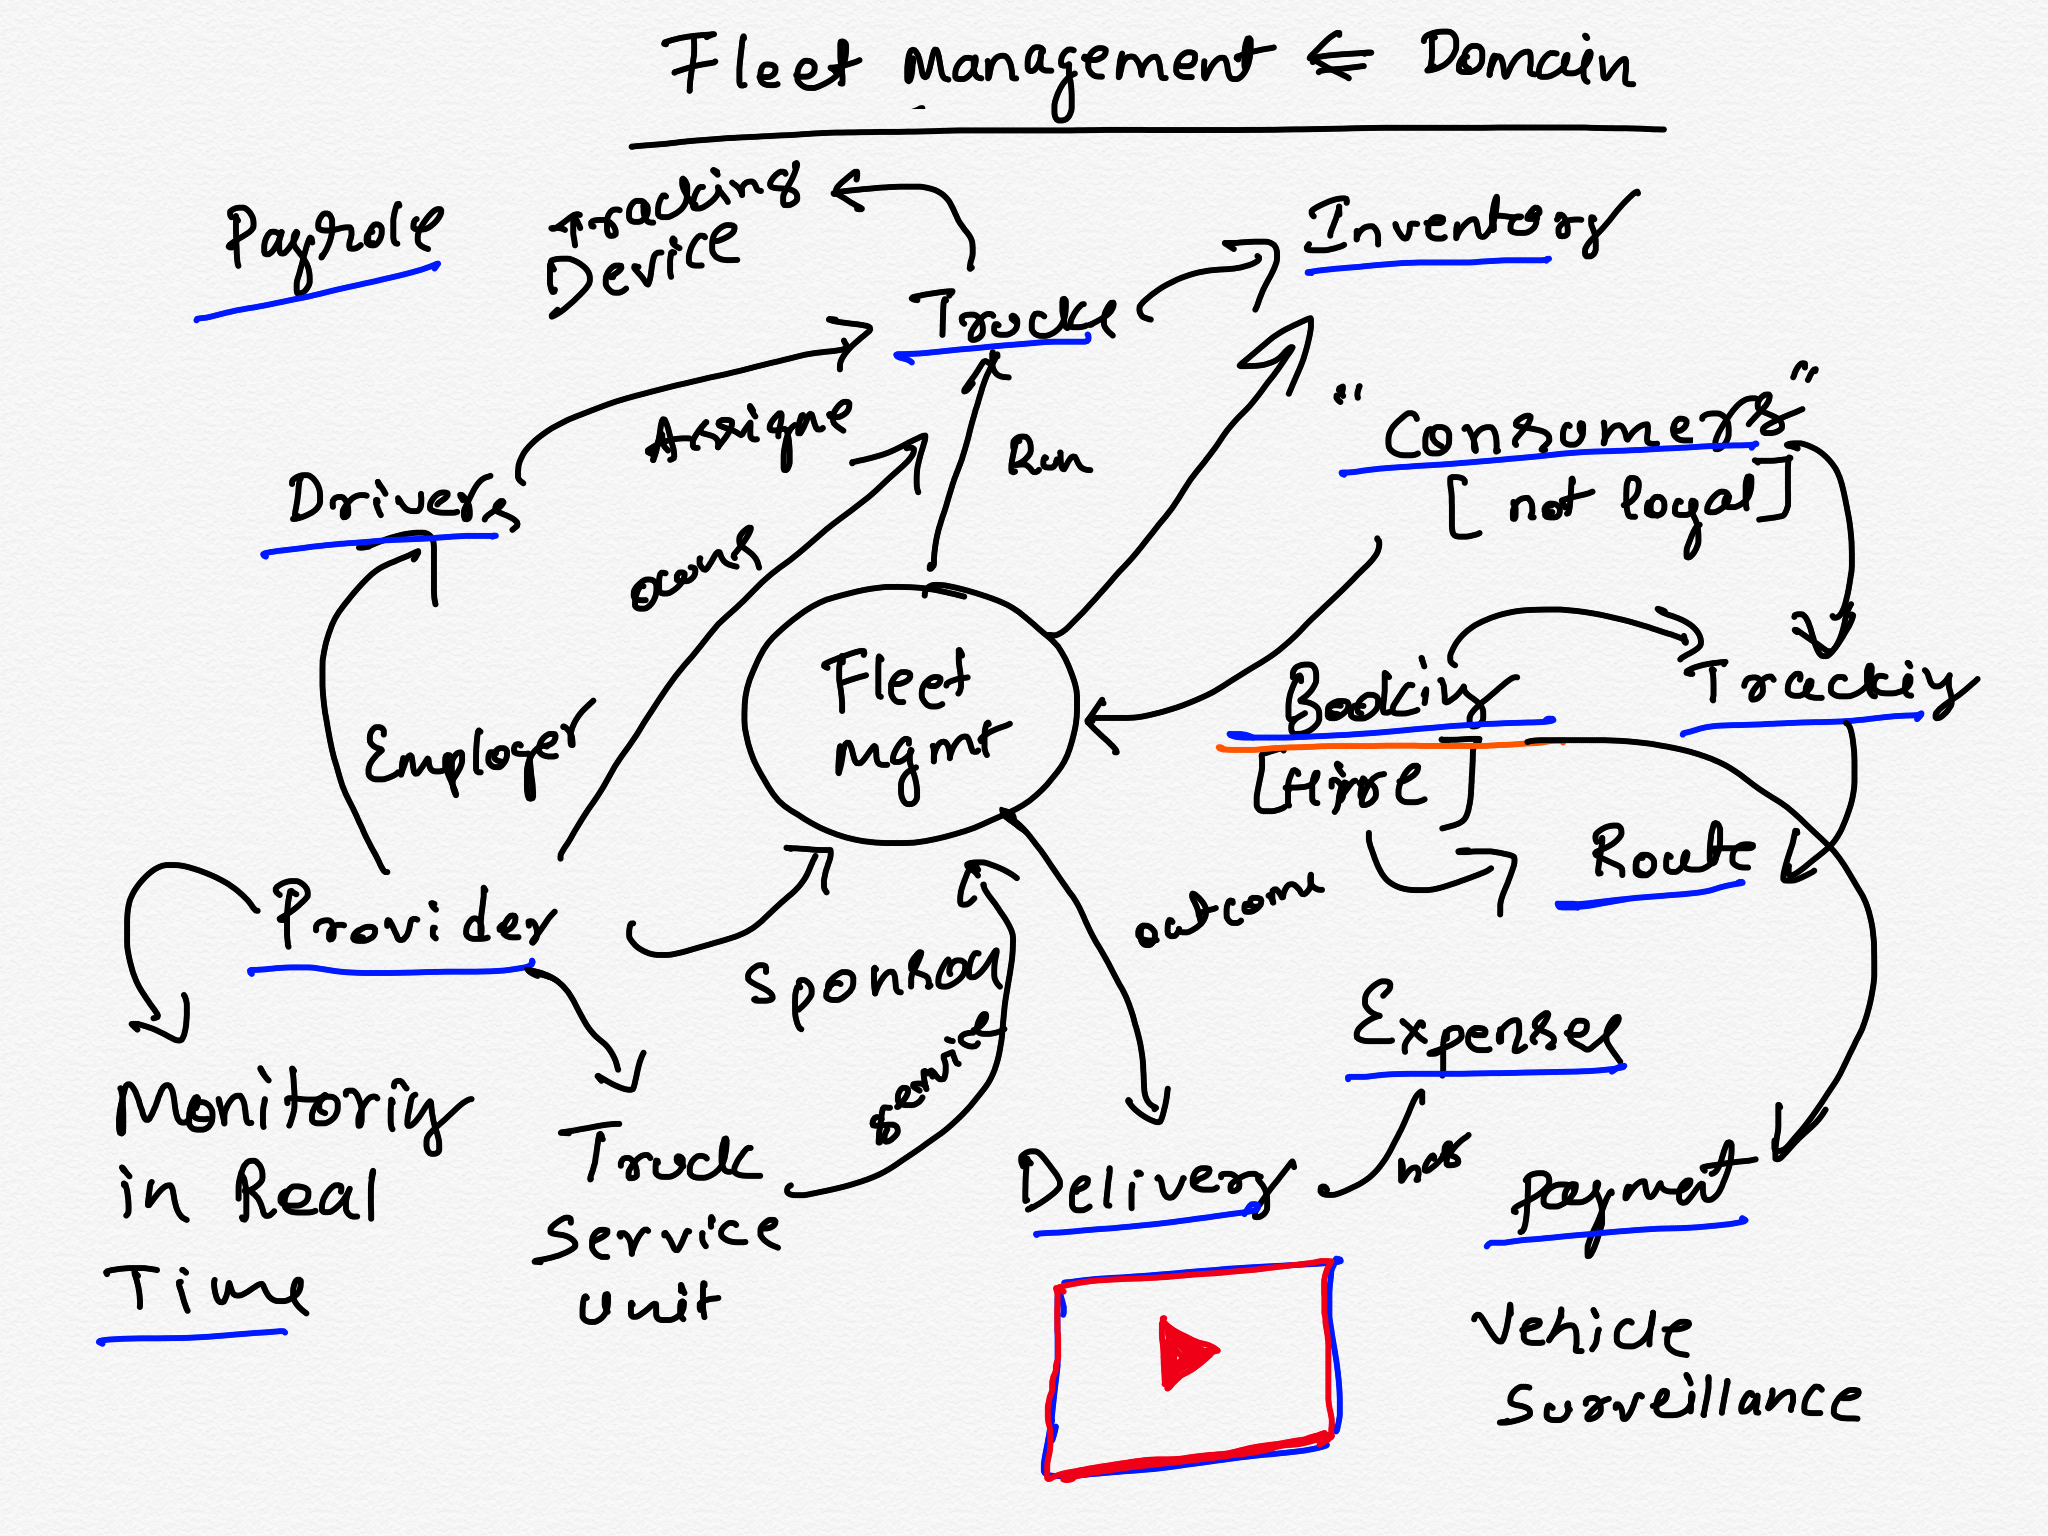 Fleet Management ⇐ Domain
Payrole
Tracking
Device
Inventory
Trucks
Assigne
Run
"Consumers"
[not loyal]
Drivers
owns
Fleet
Mgmt
Booking
[Hire]
Tracking
Employer
Route
Provider
outcome
Sponsor
service
Expenses
Monitoring
in Real
Time
Truck
Service
Unit
Delivery
has
Payment
Vehicle
Surveillance